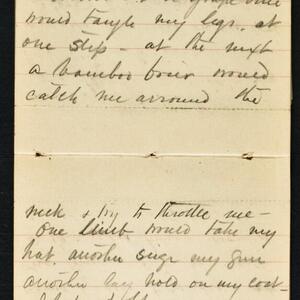 grape vine
would tangle my legs. at
one step – at the next
a bamboo brier would
catch me arround the
neck & try to throttle me –
One limb would take my
hat, another my gun
another lay hold on my coat-